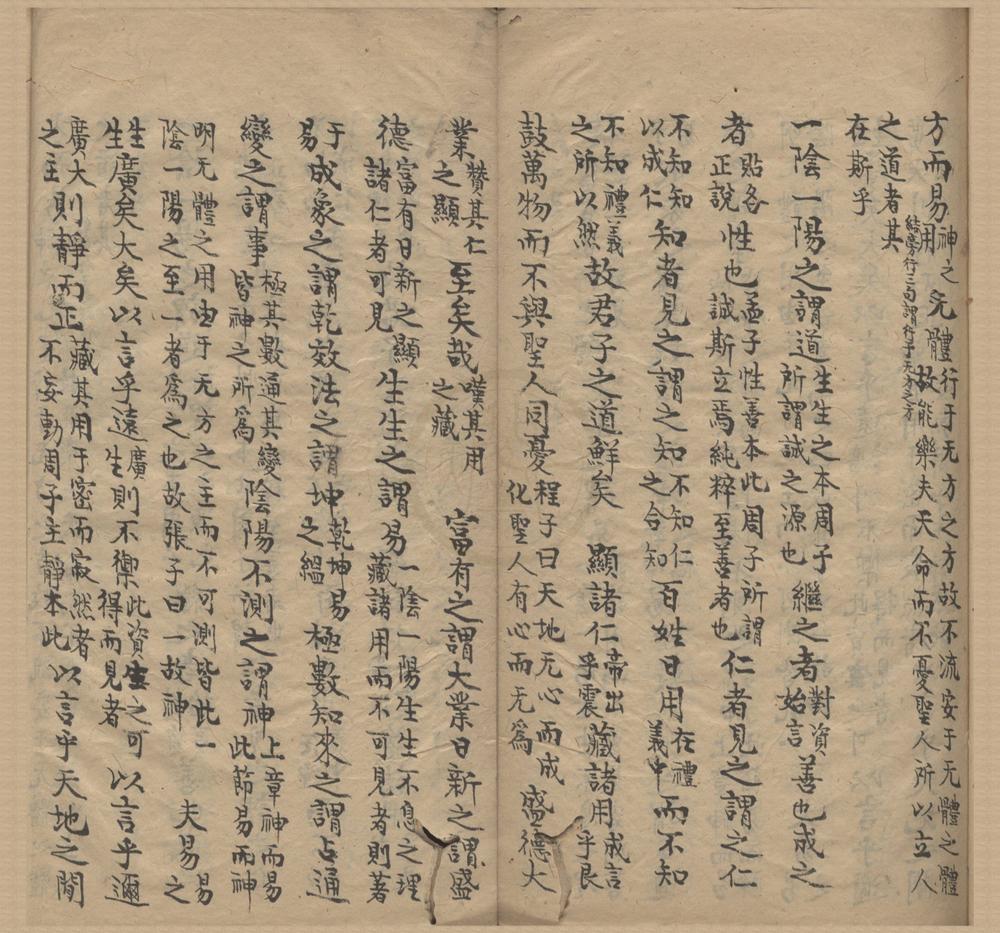 方而易神之用无體行于无方之方故不流安于无體之體故能樂夫天命而不憂聖人所以立人
之道者其在斯乎
結旁行三句謂行于无方之方
一陰一陽之謂道生生之本周子所謂誠之源也繼之者對資始言善也成之
者貼各正說性也孟子性善本此周子所謂誠斯立焉純粹至善者也仁者見之謂之仁
不知知以成仁知者見之謂之知不知仁之合知百姓日用在禮義中而不知
不知禮義之所以然故君子之道鮮矣顯諸仁帝出乎震藏諸用成言乎艮
鼓萬物而不與聖人同憂程子曰天地无心而成化聖人有心而无爲盛德大
業贊其仁之顯至矣哉嘆其用之藏富有之謂大業日新之謂盛
德富有日新之顯諸仁者可見生生之謂易一陰一陽生生不息之理藏諸用而不可見者則著
于易成象之謂乾效法之謂坤乾坤易之縕極數知來之謂占通
變之謂事極其數通其變皆神之所爲陰陽不測之謂神上章神而易此節易而神
明无體之用由于无方之主而不可測皆此一陰一陽之至一者爲之也故張子曰一故神夫易之
生生廣矣大矣以言乎遠廣生則不禦此資生之可得而見者以言乎邇
廣大之主則靜而正藏其用于密而寂然者不妄動周子主靜本此以言乎天地之間